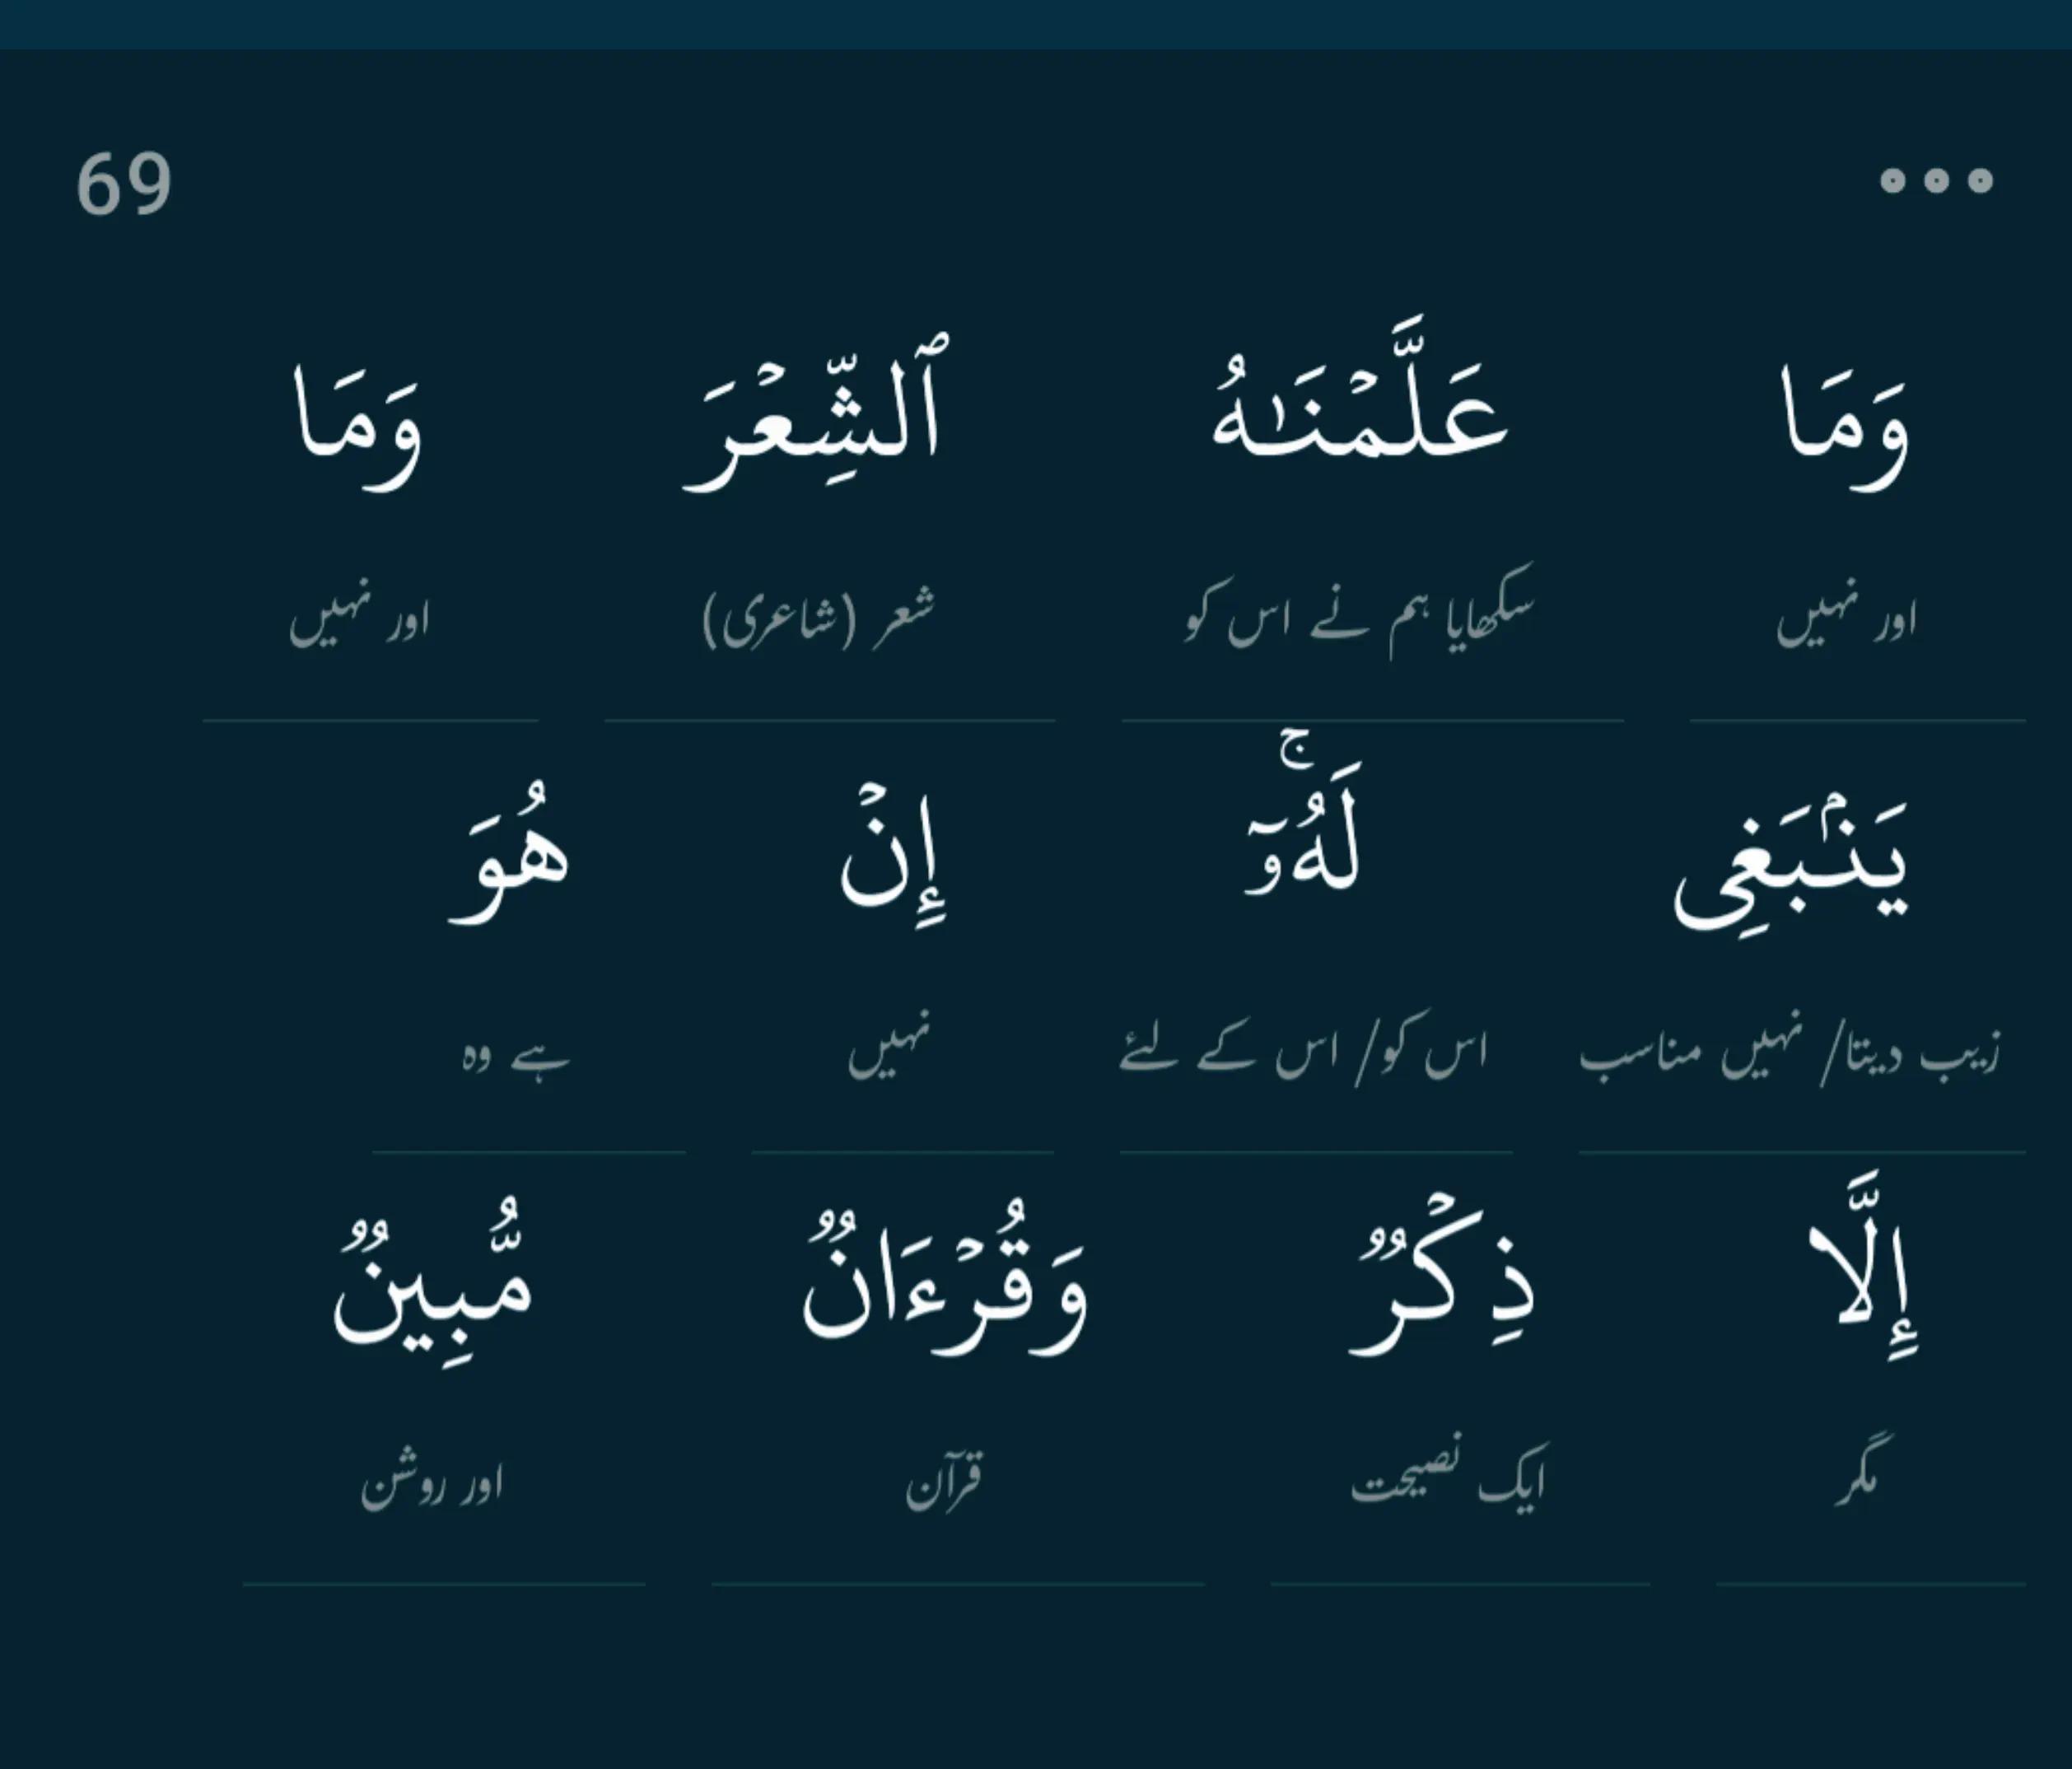 69
وَمَا عَلَّمْنَـٰهُ ٱلشِّعْرَ وَمَا
اور نہیں سکھایا ہم نے اس کو شعر (شاعری) اور نہیں
يَنۢبَغِى لَهُۥٓ ۚ إِنْ هُوَ
زیب دیتا/ نہیں مناسب اس کو/ اس کے لئے نہیں ہے وہ
إِلَّا ذِكْرٌ وَقُرْءَانٌ مُّبِينٌ
مگر ایک نصیحت قرآن اور روشن